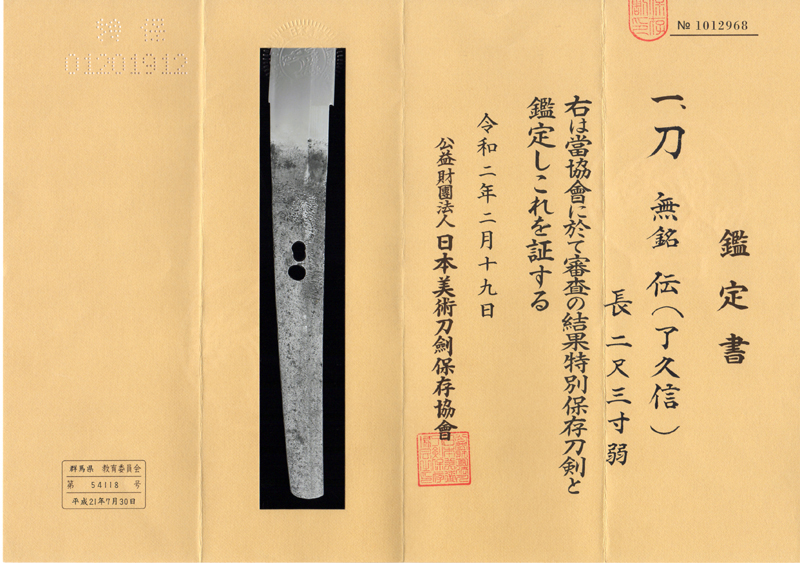 鑑定書
№ 1012968
一、刀 無銘 伝(了久信)
長 二尺三寸弱
右は當協會に於て審査の結果特別保存刀剣と
鑑定しこれを証する
令和二年二月十九日
公益財團法人 日本美術刀劍保存協會
01201912
群馬県 教育委員会
第 54118 号
平成21年7月30日